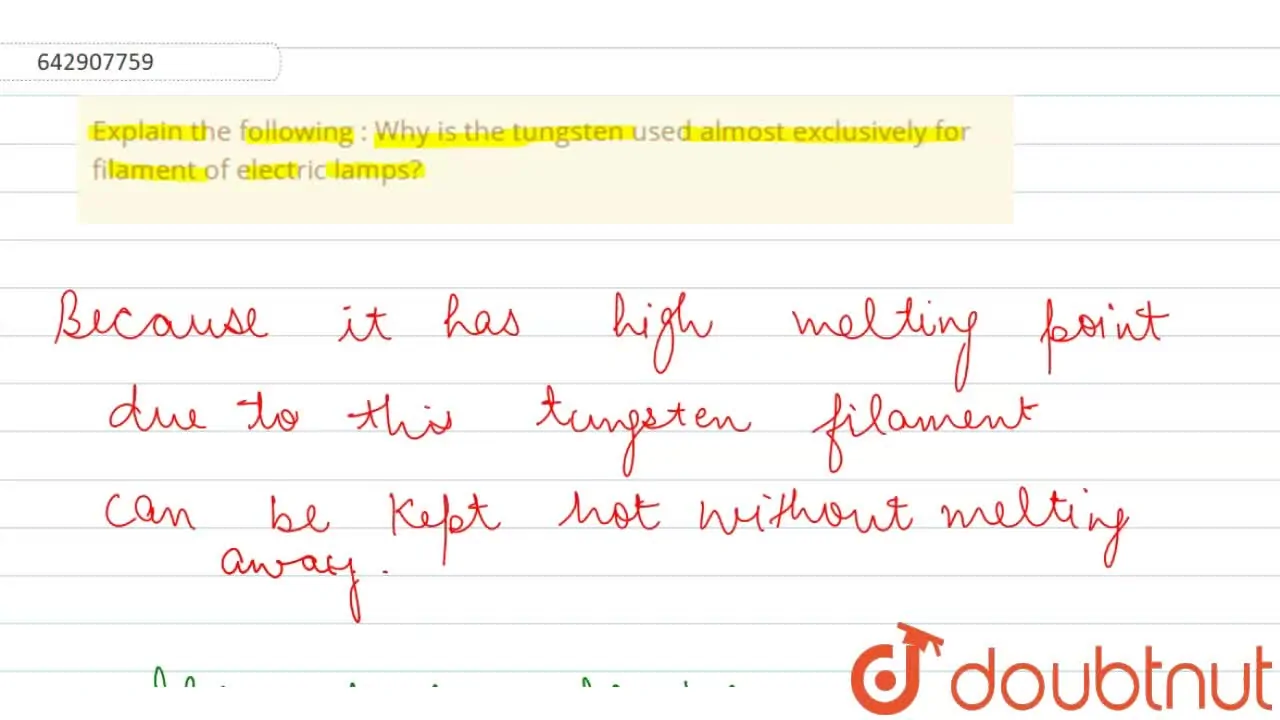 642907759
Explain the following : Why is the tungsten used almost exclusively for
filament of electric lamps?
Because it has high melting point
due to this tungsten filament
can be kept hot without melting
away.
doubtnut